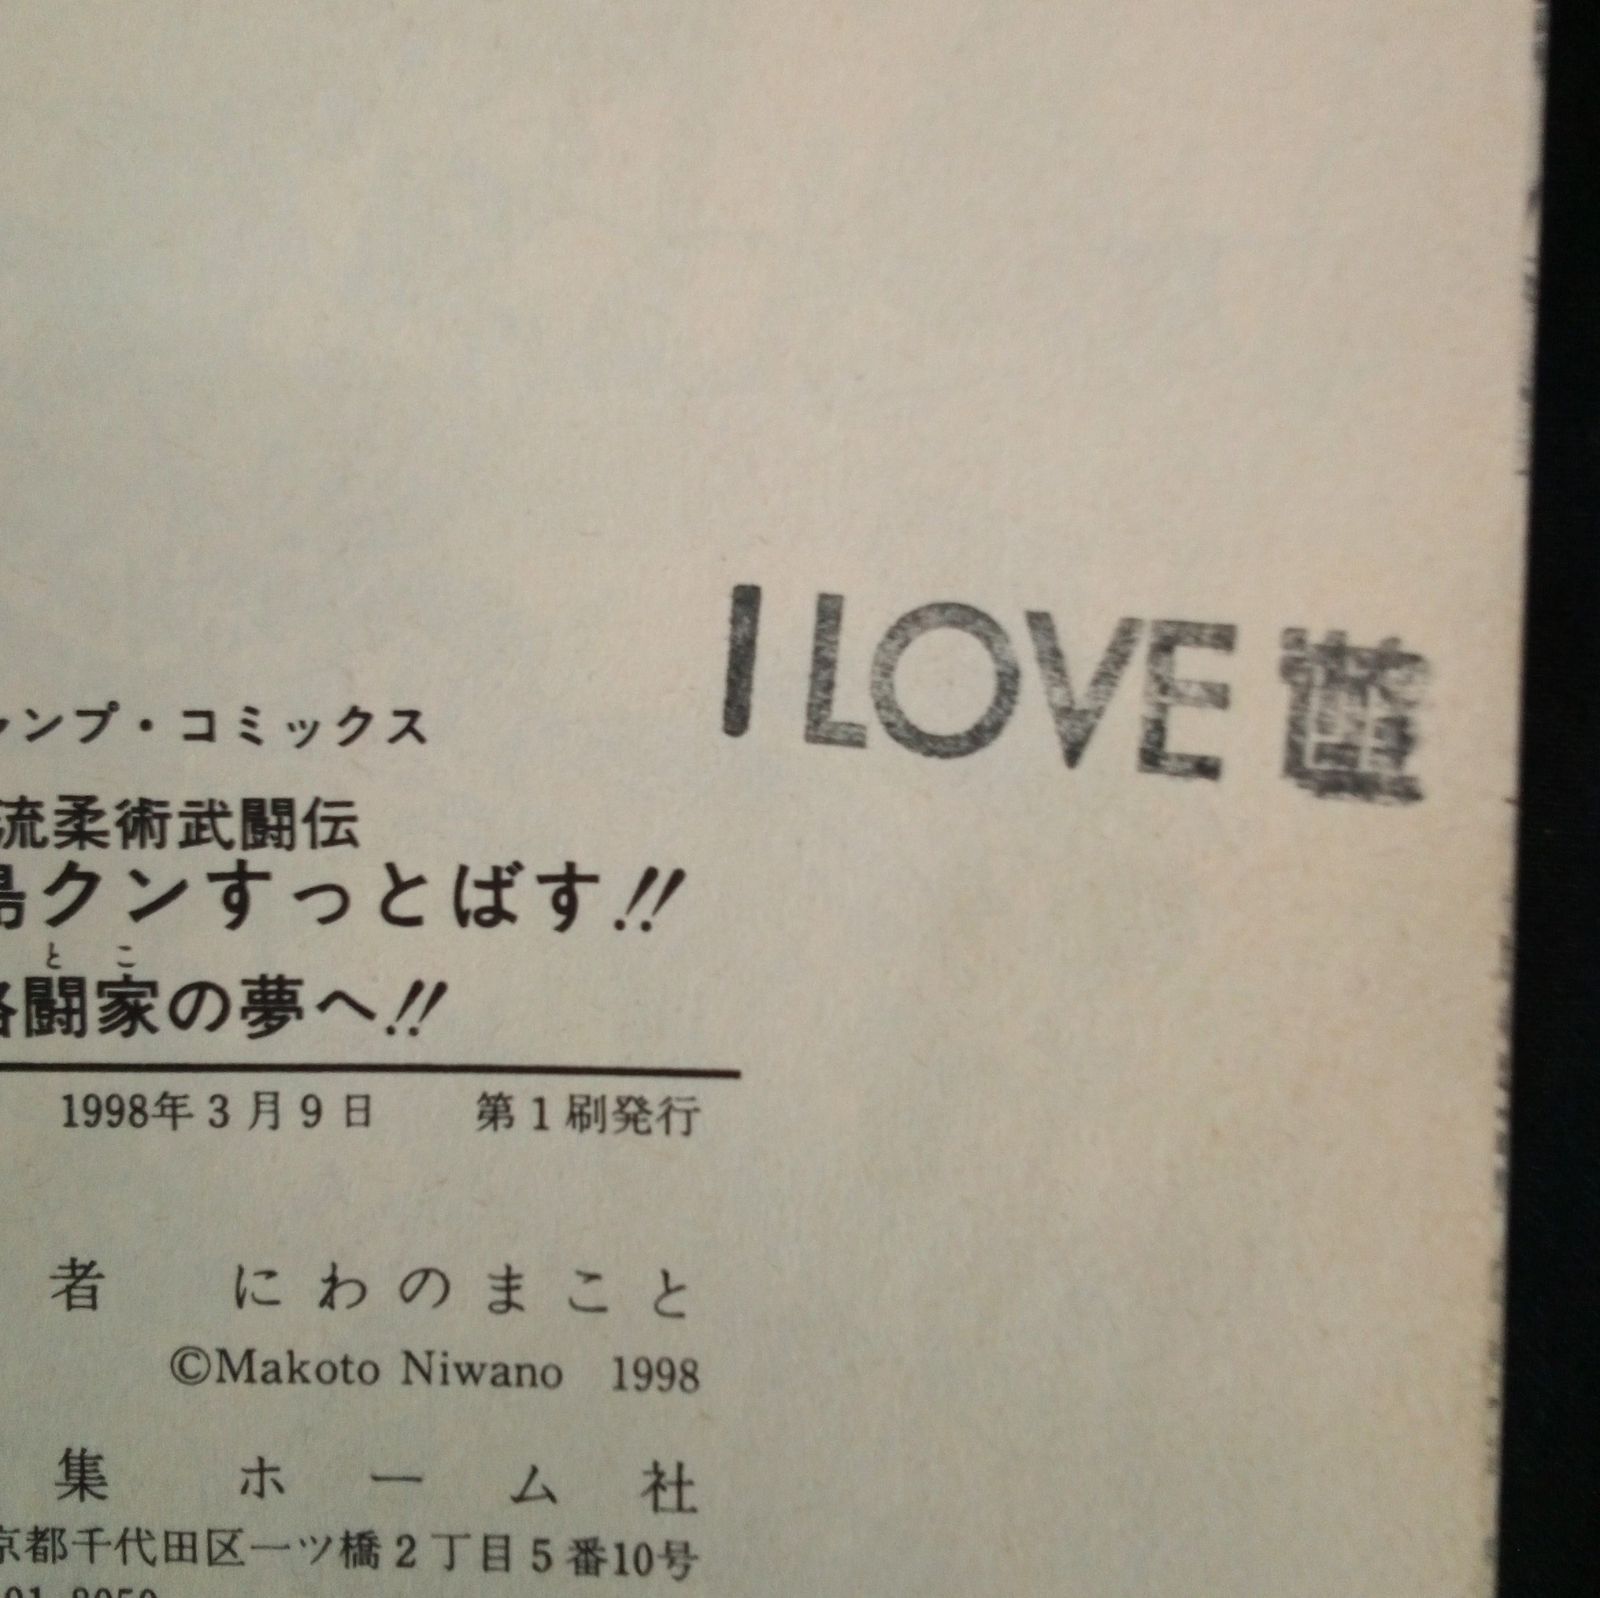 I LOVE 遊
ャンプ・コミックス
流柔術武闘伝
島クンすっとばす!!
とこ
格闘家の夢へ!!
1998年3月9日 第1刷発行
者 にわのまこと
©Makoto Niwano 1998
集 ホーム社
京都千代田区一ツ橋2丁目5番10号